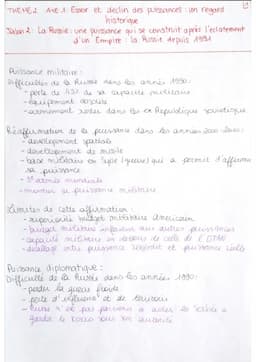 THEME 2 Axe 1: Essor et déclin des puissances: un regard historique
Jalon 2: La Russie: une puissance qui se construit après l'éclatement d'un Empire: la Russie depuis 1991
Puissance militaire:
Difficultés de la Russie dans les années 1990:
- perte de 45% de sa capacité militaire
- équipement obsolète
- armement resté dans les ex République soviétique
Réaffirmation de la puissance dans les années 2000-2020:
- développement spatiale
- développement de missile
- base militaire en Syrie (guerre) qui a permit d'affirmer sa puissance
- 2e armée mondiale
- montrer sa puissance militaire
Limites de cette affirmation:
- supériorité budget militaire américain
- budget militaire inférieur aux autres puissances
- capacité militaire en dessous de celle de l'OTAN
- décallage entre puissance
Puissance diplomatique:
Difficulté de la Russie dans les années 1990:
- perdu la guerre froide
- perte d'influence et de territoire
- Russie n'est pas parvenu à aider la Serbie à garder le Kosovo sous son autorité